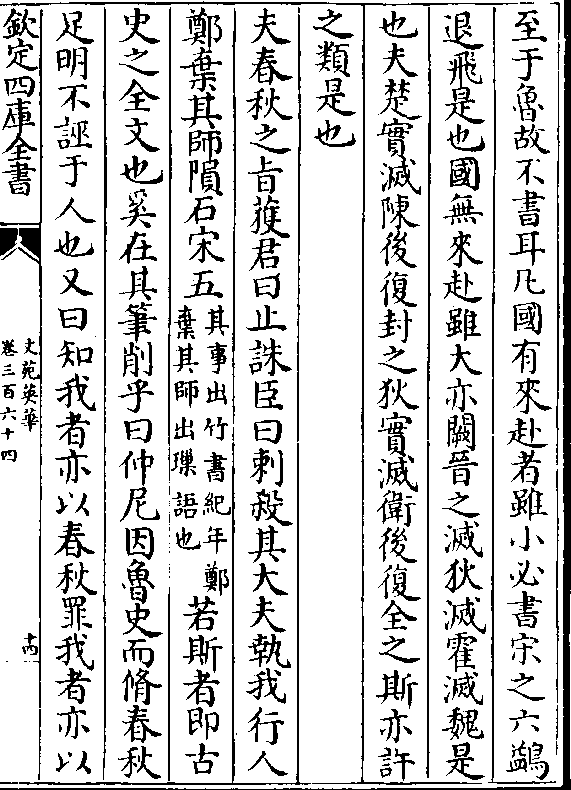 至于魯故不書耳凡國有來赴者雖小必書宋之六鷁
退飛是也國無來赴雖大亦闕晉之滅狄滅霍滅魏是
也夫楚實滅陳後復封之狄實滅衛後復全之斯亦許
之類是也
夫春秋之旨獲君曰止誅臣曰刺殺其大夫執我行人
鄭棄其師隕石宋五其事出竹書紀年鄭棄其師出璅語也若斯者即古
史之全文也奚在其筆削乎曰仲尼因魯史而脩春秋
足明不誣于人也又曰知我者亦以春秋罪我者亦以
欽定四庫全書
文苑英華
卷三百六十四
十四